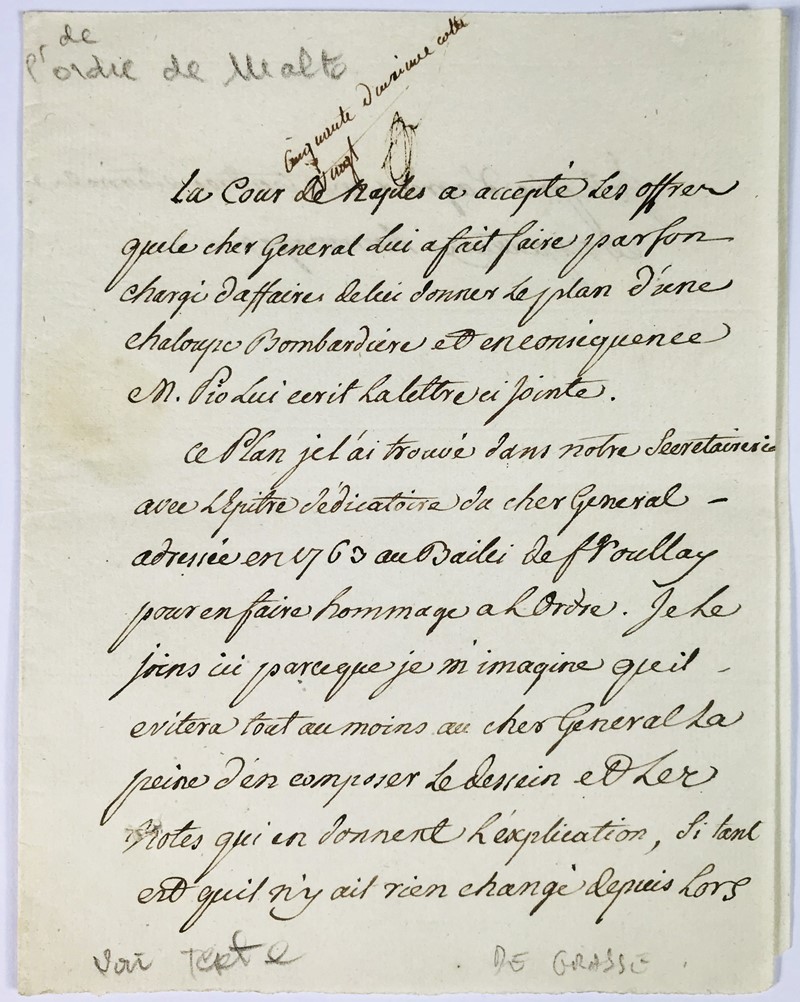 de
l' ordre de Malte
Cinquante deuxieme cotte
Vingt
La Cour de Naples a accepté Les offres
que le cher General Lui a fait faire par son
chargé d'affaires de lui donner Le plan d'une
chaloupe Bombardiere et en consequence
M. Pio Lui ecrit La lettre ci jointe.
Ce Plan je l'ai trouvé dans notre Secretairerie
avec L'Epitre dédicatoire du cher General -
adressée en 1763 au Bailli de froullay
pour en faire hommage a L'Ordre. Je Le
joins ici parceque je m'imagine qu'il -
evitera tout au moins au cher General La
peine d'en composer Le dessein et Les
Notes qui en donnent L'explication, Si tant
est qu'il n'y ait rien changé depuis Lors
Voir Texte
DE GRASSE